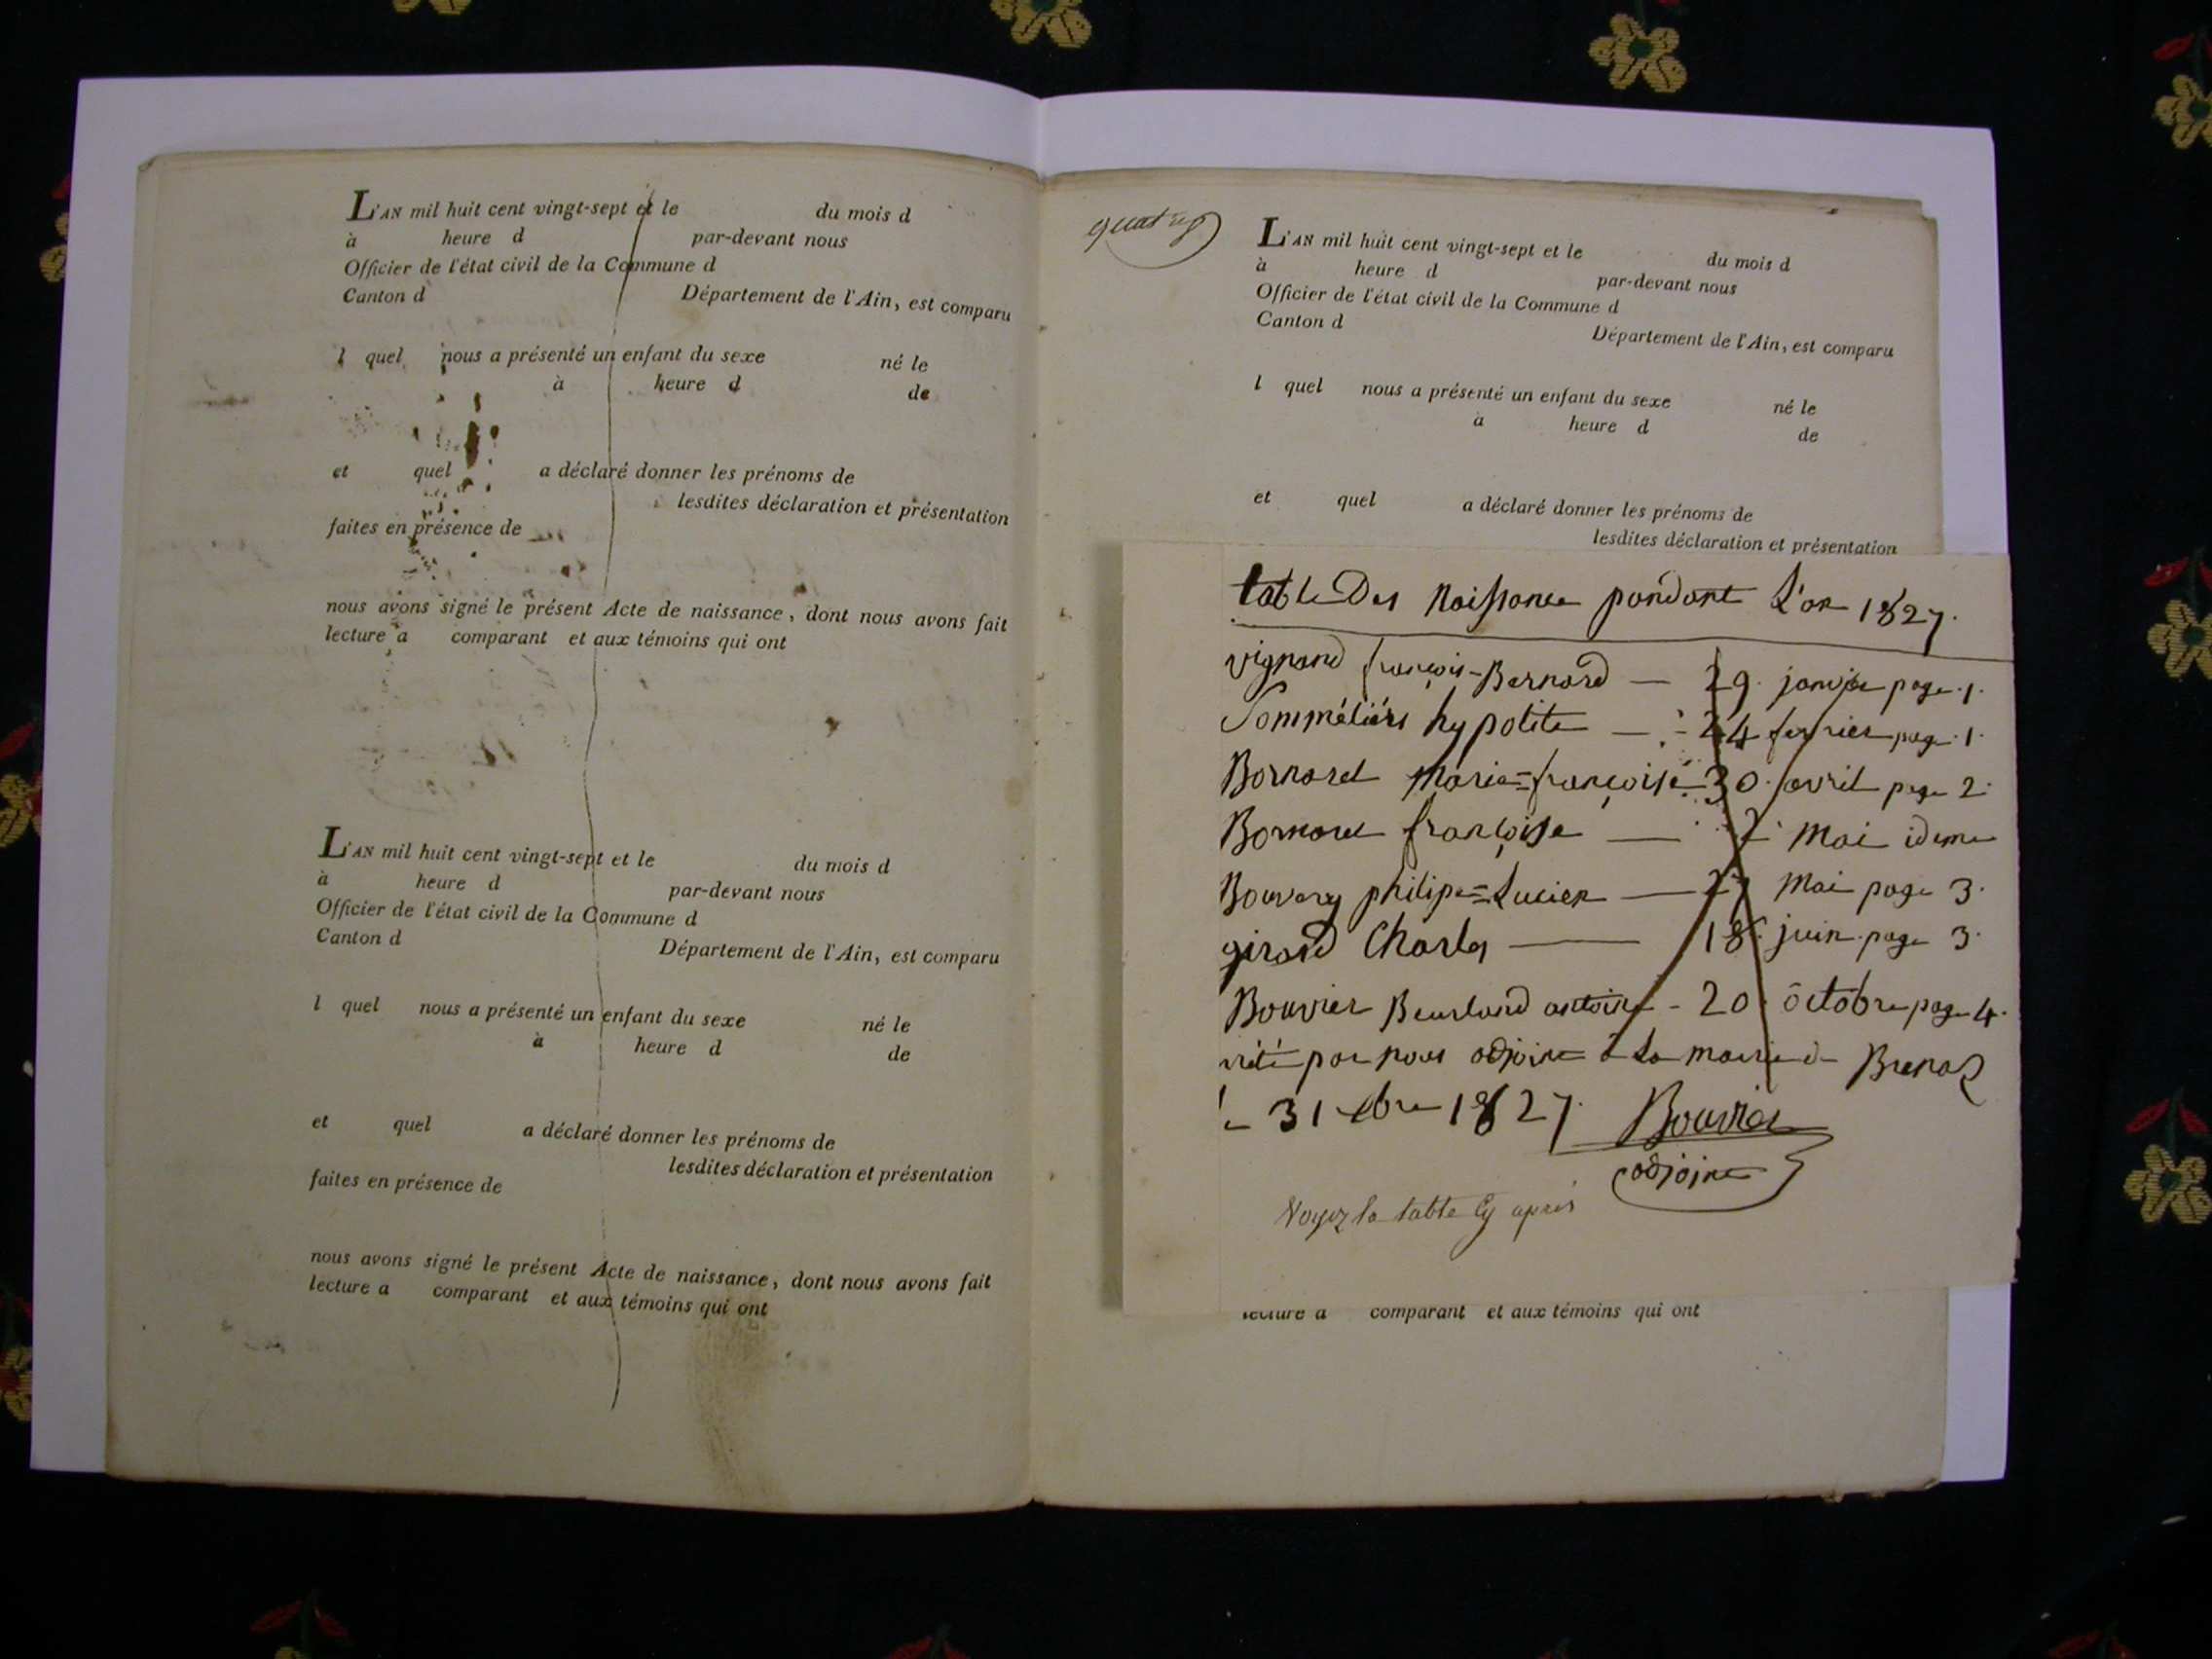 L'AN mil huit cent vingt-sept et le du mois d
à heure d par-devant nous
Officier de l'état civil de la Commune d
Canton d Département de l'Ain, est comparu
l quel nous a présenté un enfant du sexe né le
à heure d de
et quel a déclaré donner les prénoms de
lesdites déclaration et présentation
faites en présence de
nous avons signé le présent Acte de naissance, dont nous avons fait
lecture a comparant et aux témoins qui ont
L'AN mil huit cent vingt-sept et le du mois d
à heure d par-devant nous
Officier de l'état civil de la Commune d
Canton d Département de l'Ain, est comparu
l quel nous a présenté un enfant du sexe né le
à heure d de
et quel a déclaré donner les prénoms de
lesdites déclaration et présentation
faites en présence de
nous avons signé le présent Acte de naissance, dont nous avons fait
lecture a comparant et aux témoins qui ont
L'AN mil huit cent vingt-sept et le du mois d
à heure d par-devant nous
Officier de l'état civil de la Commune d
Canton d Département de l'Ain, est comparu
l quel nous a présenté un enfant du sexe né le
à heure d de
et quel a déclaré donner les prénoms de
lesdites déclaration et présentation
table Des Naissance pendant L'an 1827.
vignand françois-Bernard — 29. janvier page 1.
Somméliérs hypolite — 24 fevrier page 1.
Bornard Marie=françoise 30. avril page 2.
Bornard françoise — 2 Mai ideme
Bouvery philipe=Lucien — 27 Mai page 3.
girard Charles — 18. juin page 3.
Bouvier antoine - 20 octobre page 4.
par nous adjoint à La mairie de Brenaz
31 xbre 1827. Bouvier
adjoint
Voyez la table Cy après
lecture a comparant et aux témoins qui ont